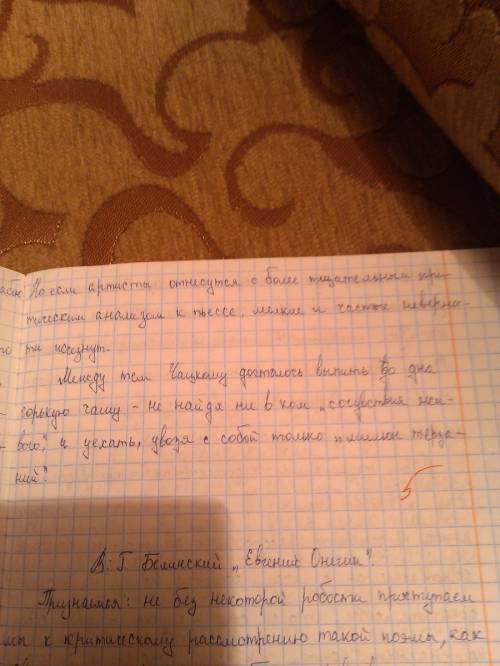 Но если артисты отнесутся с боле тщательным кри-
тическим анализом к пьессе, мелкие и частые неверно-
ти исчезнут.
Между тем Чацкому досталось выпить до дна
горькую чашу - не найдя ни в ком „сочуствия жи-
вого", и уехать, увозя с собой только „милион терза-
ний".
5
В. Г Белинский „Евгений Онегин".
Признаемся: не без некоторой робости приступаем
мы к критическому рассмотрению такой поэмы, как